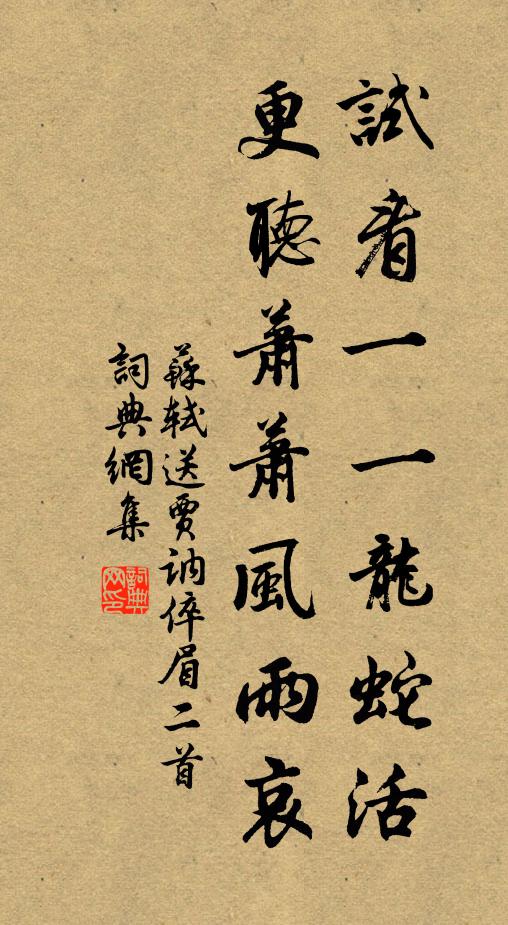 試看一一龍蛇活
更聽蕭蕭風雨哀
蘇軾送賈訥倅眉二首
詞典網集
詞典网印